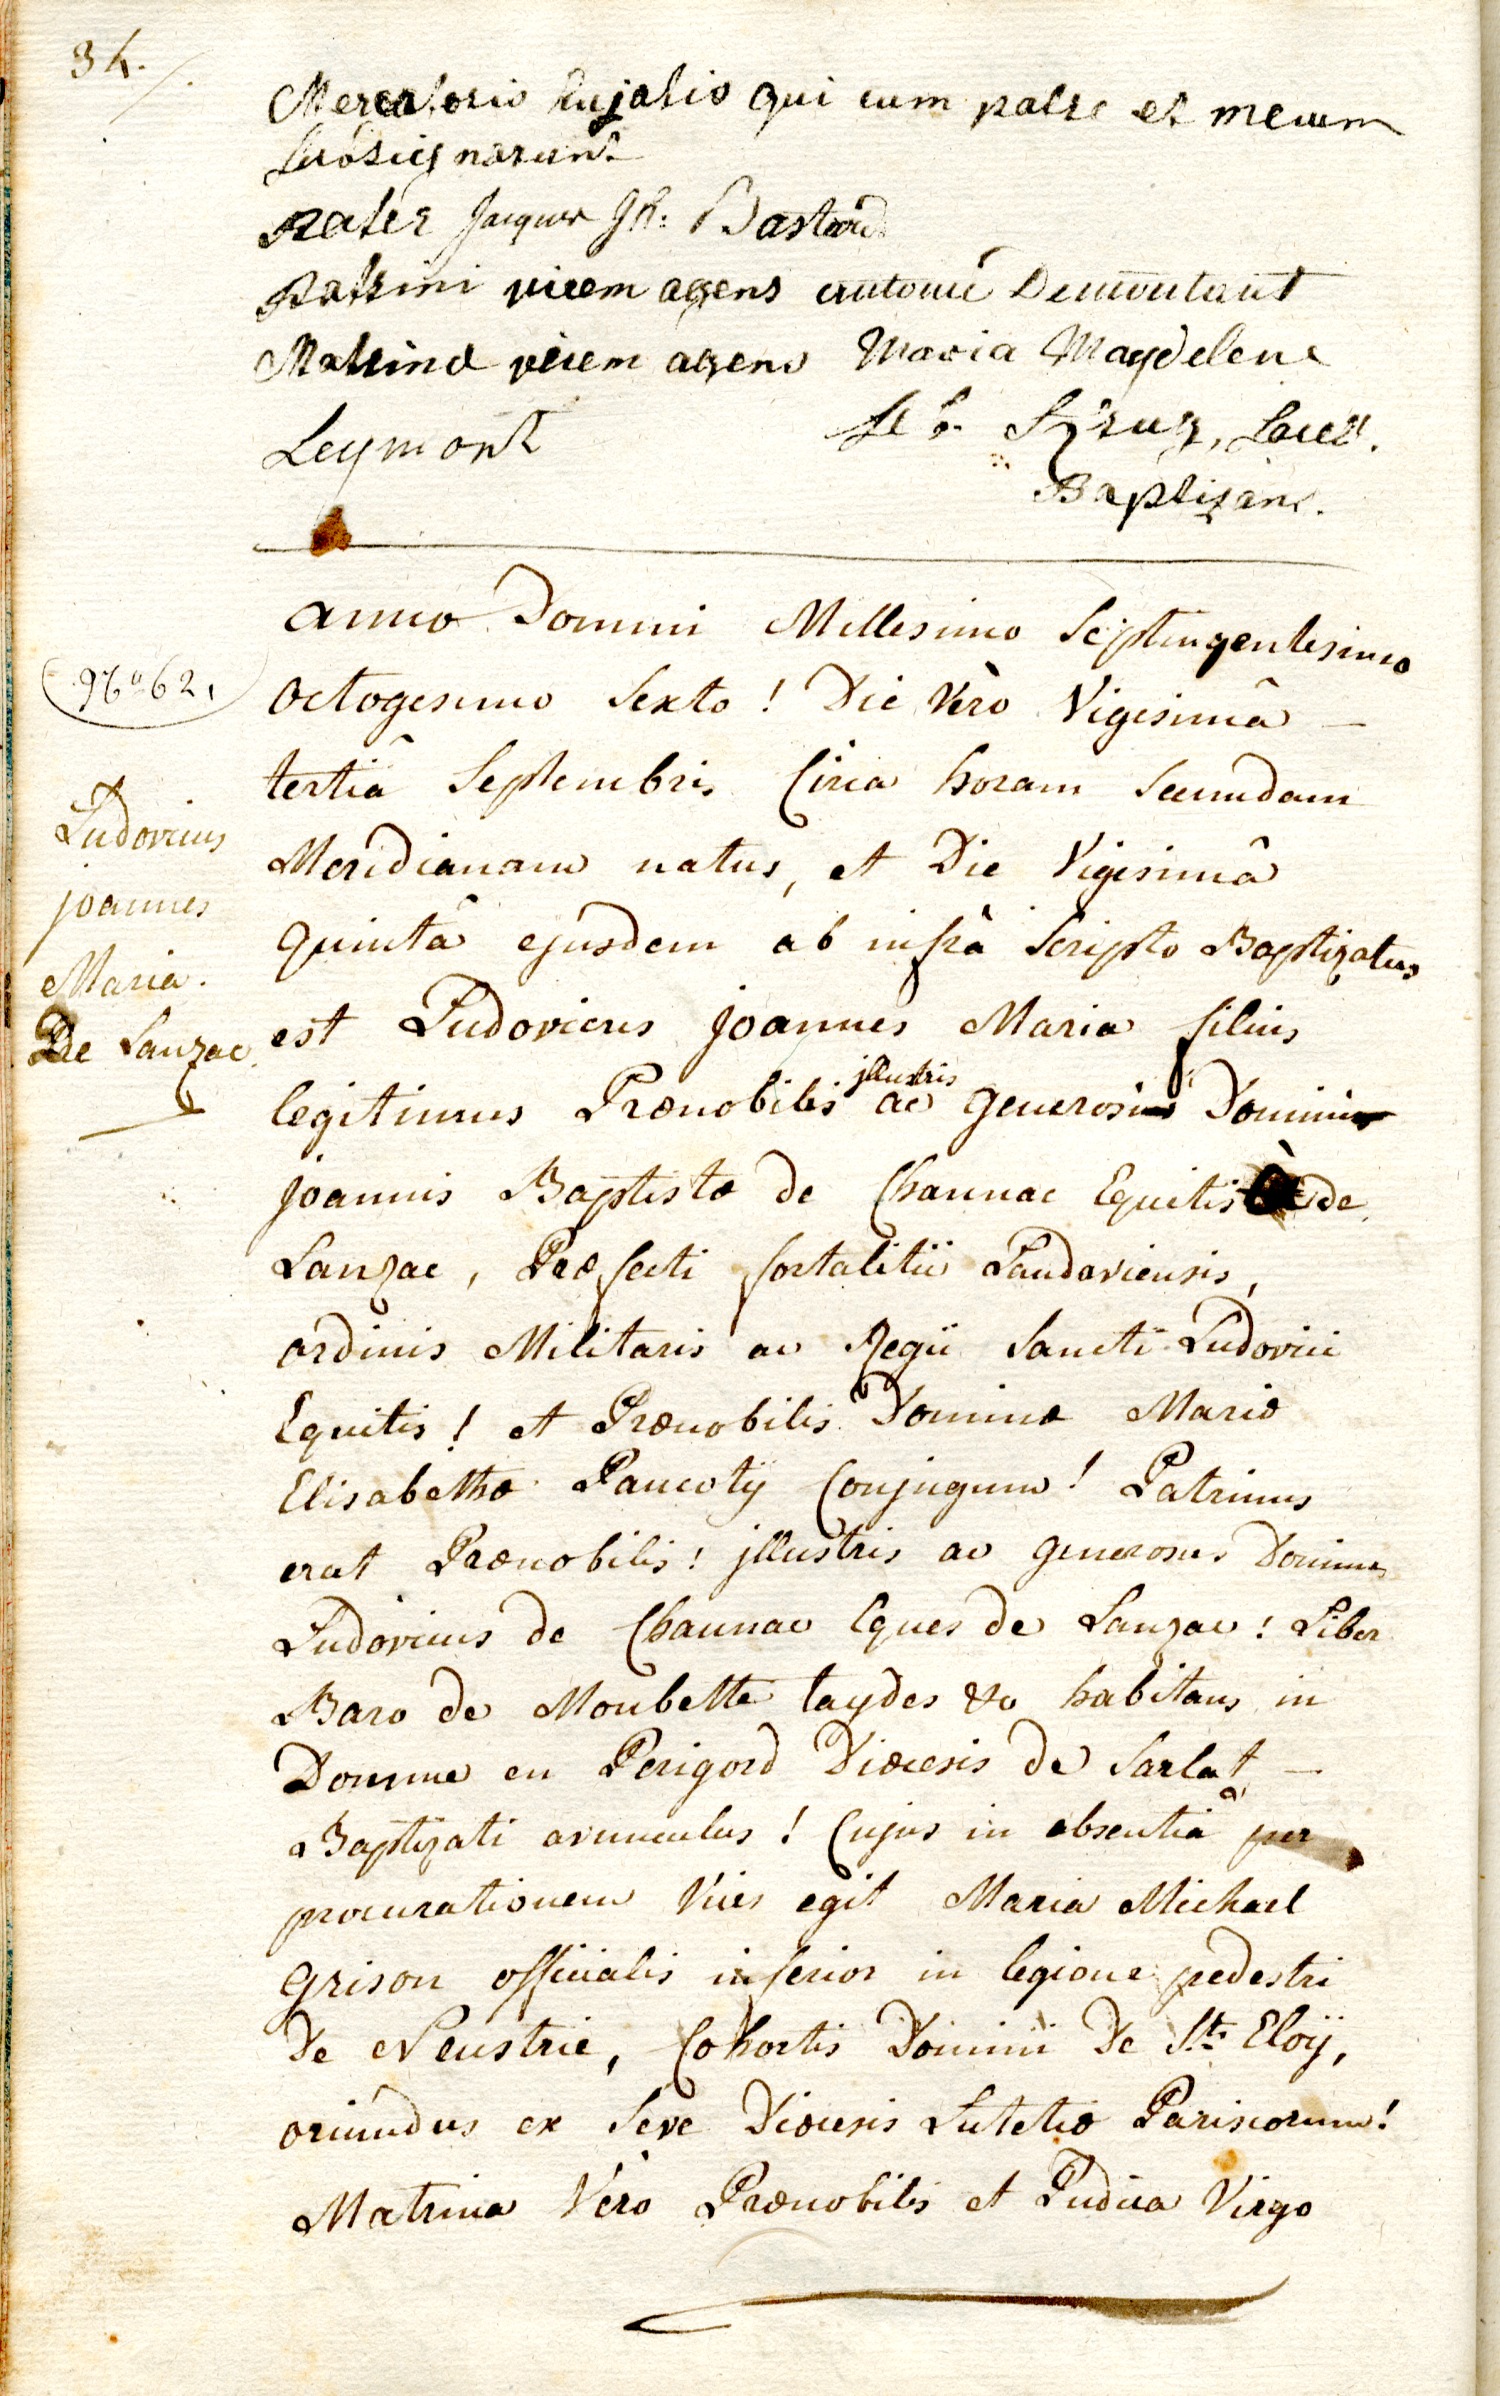 34.
Mercatoris hujatis qui cum patre et mecum
subsignarunt
Pater Jacques Jh: Bastard
Patrini vicem agens antoine Demontant
Matrinæ vicem agens Maria Magdelene
Leymont
Baptizans.
anno Domini Millesimo Septingentesimo
Octogesimo Sexto ! Die Vèro Vigesimâ —
tertiâ Septembris Circa horam Secundam
Meridianam natus, et Die Vigesimâ
Quintâ ejusdem ab infrà Scripto Baptizatus
est Ludovicus joannes Maria filius
legitimus Prænobilis illustris ac Generosi Domini
joannis Baptistæ de Chaunac Equitis de
Lanzac, Præfecti fortalitii Landaviensis,
ordinis Militaris ac Regii Sancti Ludovici
Equitis ! et Prænobilis Dominæ Mariæ
Elisabethæ Pancoty Conjugum ! Patrinus
erat Prænobilis ! jllustris ac Generosus Dominus
Ludovicus de Chaunac Eques de Lanzac ! Liber
Baro de Monbette taydes &c habitans in
Domme en Perigord Diœcesis de Sarlat, —
Baptizati avunculus ! Cujus in absentiâ per
procurationem Vices egit Maria Michael
Grison officialis inferior in legione pedestri
De Neustrie, Cohortis Domini De St: Eloÿ,
oriundus ex Seve Diœcesis Lutetiæ Parisiorum !
Matrina Vèrò Prænobilis et Pudica Virgo
Nº 62.
Ludovicus
joannes
Maria.
De Lanzac